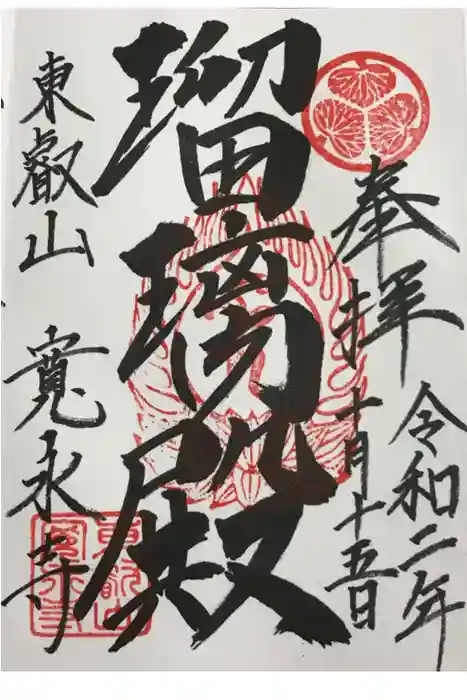 奉拝
令和二年
十月十五日
瑠璃殿
東叡山 寛永寺